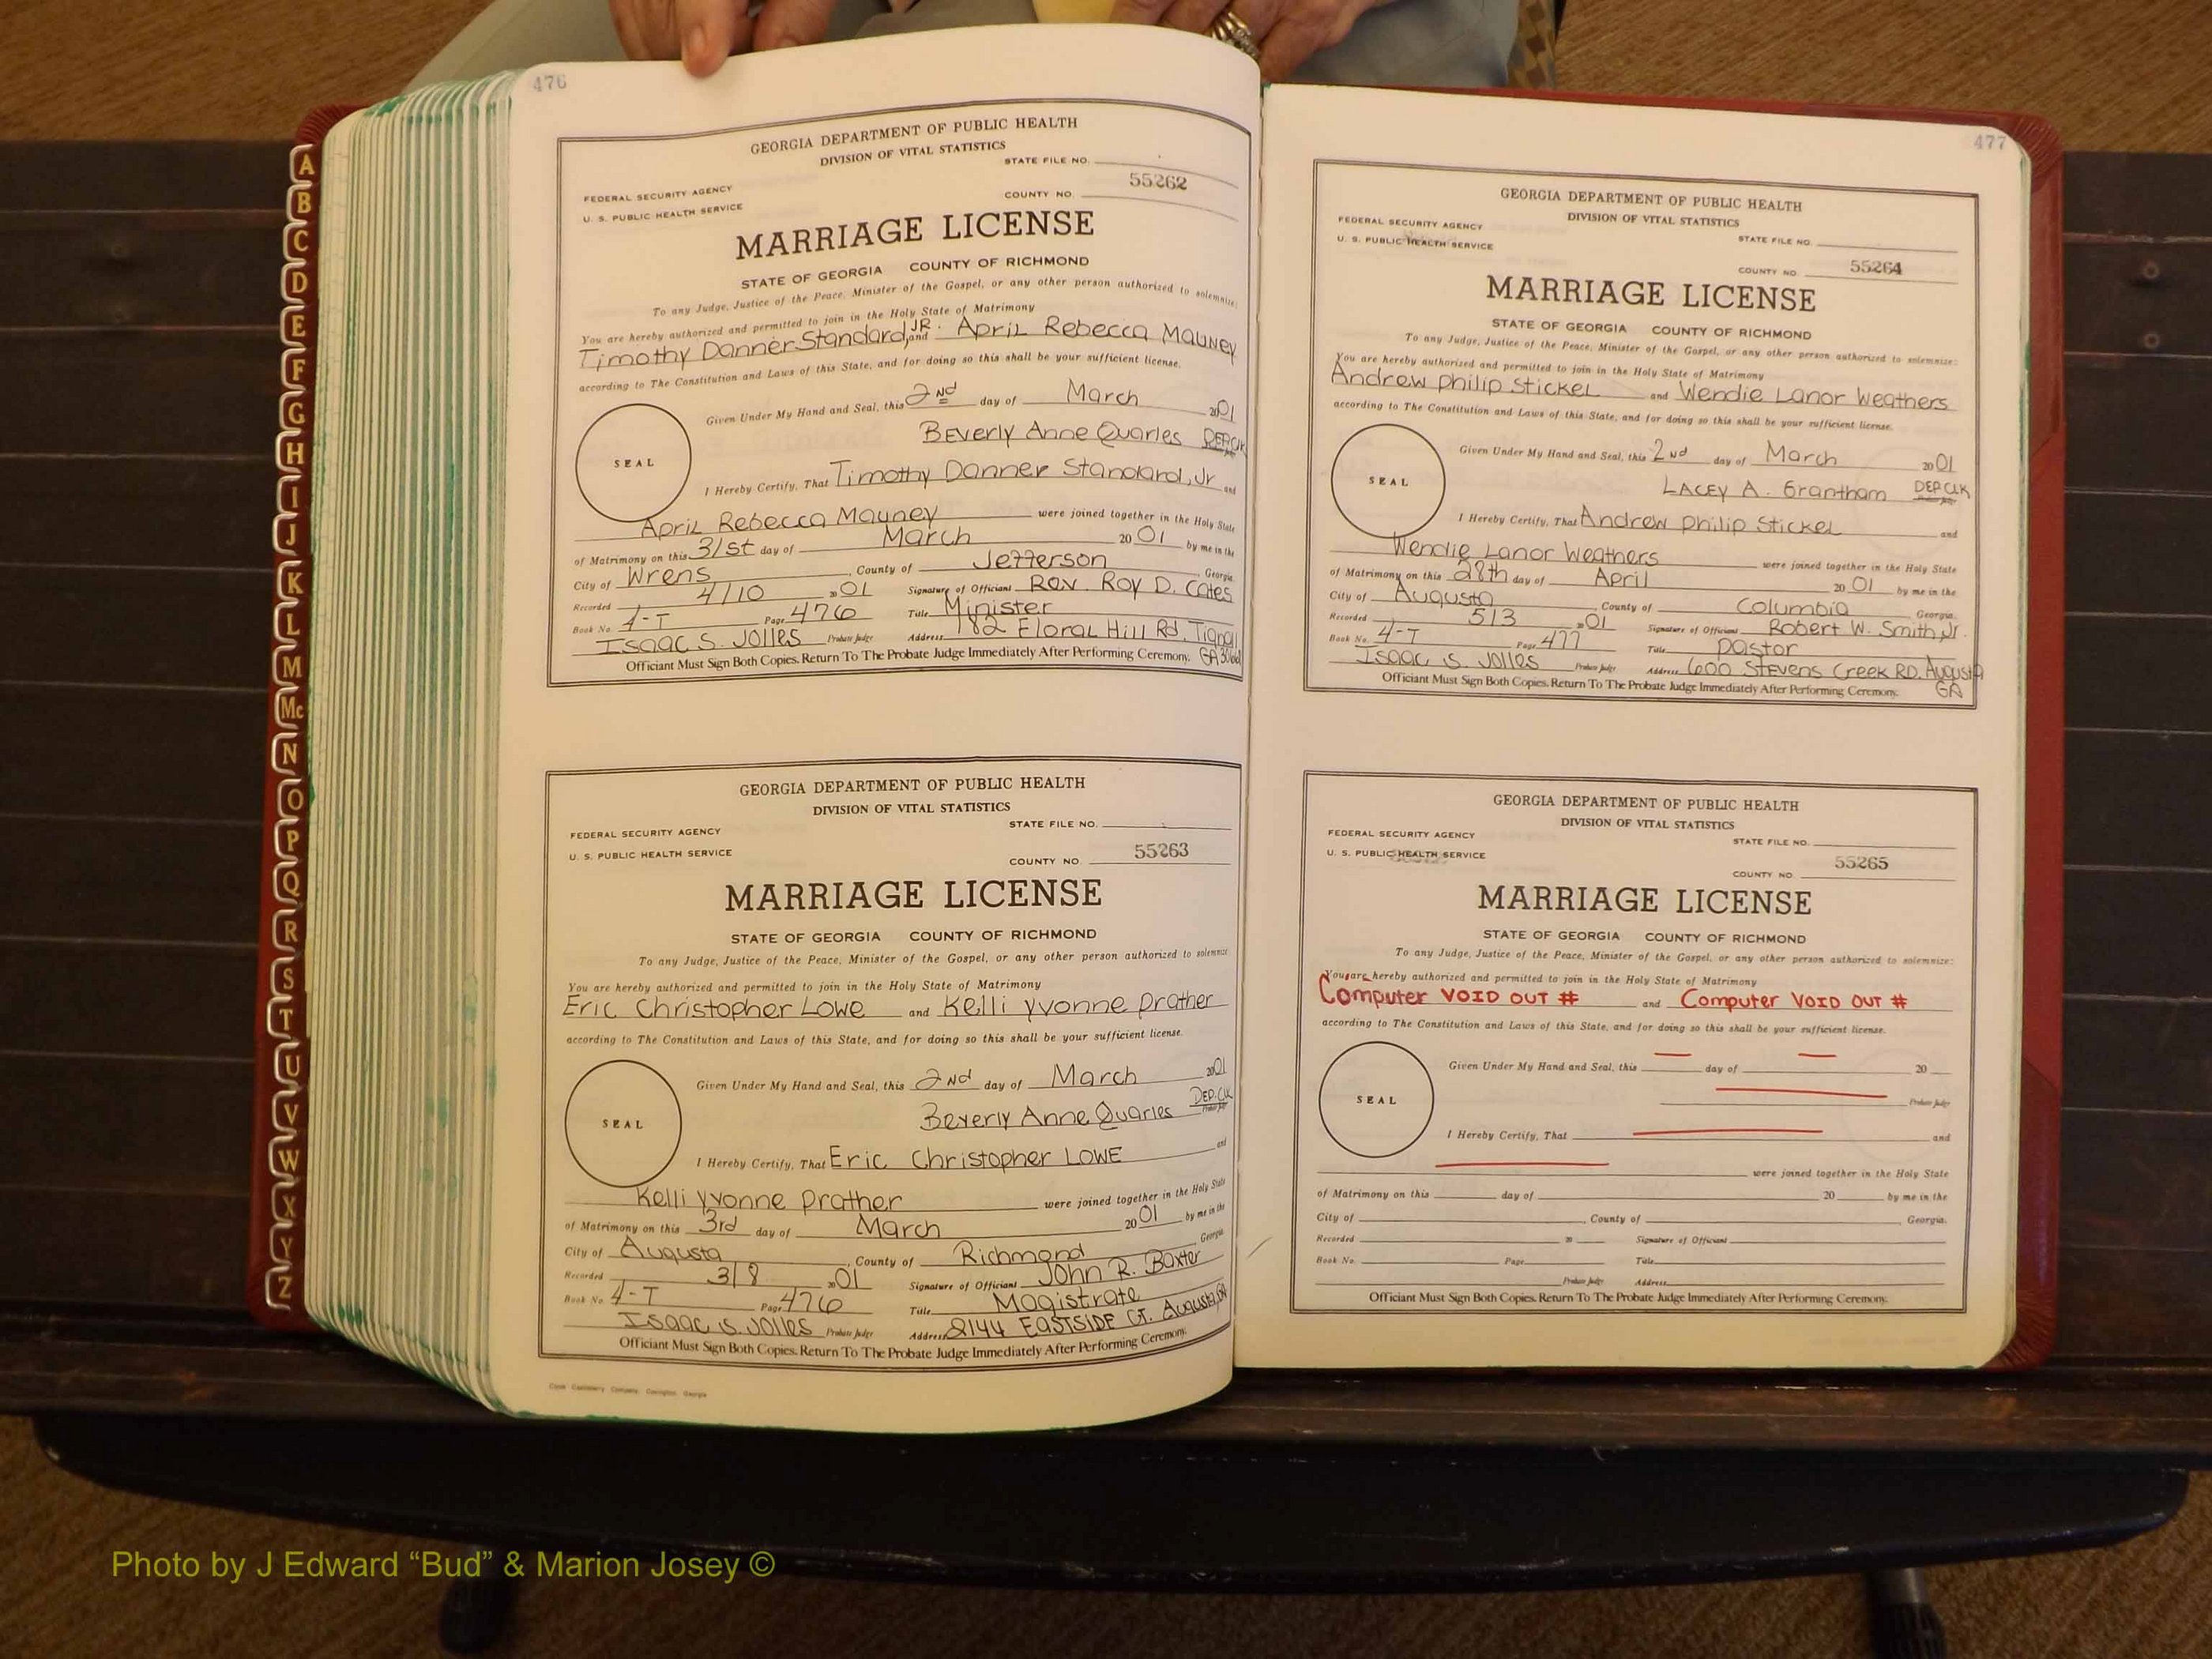 A
B
C
D
E
F
G
H
I
J
K
L
M
Mc
N
O
P
Q
R
S
T
U
V
W
X
Y
Z
476
GEORGIA DEPARTMENT OF PUBLIC HEALTH
DIVISION OF VITAL STATISTICS
STATE FILE NO.
FEDERAL SECURITY AGENCY
U. S. PUBLIC HEALTH SERVICE
COUNTY NO. 55262
MARRIAGE LICENSE
STATE OF GEORGIA COUNTY OF RICHMOND
To any Judge, Justice of the Peace, Minister of the Gospel, or any other person authorized to solemnize:
You are hereby authorized and permitted to join in the Holy State of Matrimony
Timothy Danner Standard, JR. and April Rebecca Mauney
according to The Constitution and Laws of this State, and for doing so this shall be your sufficient license.
Given Under My Hand and Seal, this 2nd day of March 2001
Beverly Anne Quarles DEP.Clk
SEAL
I Hereby Certify, That Timothy Danner Standard, Jr and
April Rebecca Mauney were joined together in the Holy State
of Matrimony on this 31st day of March 2001 by me in the
City of Wrens, County of Jefferson, Georgia
Recorded 4/10 2001 Signature of Officiant Rev. Roy D. Cates
Book No. 4-T Page 476 Title Minister
Isaac S. Jolles Probate Judge Address 182 Floral Hill Rd, Tignall
GA
Officiant Must Sign Both Copies. Return To The Probate Judge Immediately After Performing Ceremony.
GEORGIA DEPARTMENT OF PUBLIC HEALTH
DIVISION OF VITAL STATISTICS
STATE FILE NO.
FEDERAL SECURITY AGENCY
U. S. PUBLIC HEALTH SERVICE
COUNTY NO. 55263
MARRIAGE LICENSE
STATE OF GEORGIA COUNTY OF RICHMOND
To any Judge, Justice of the Peace, Minister of the Gospel, or any other person authorized to solemnize:
You are hereby authorized and permitted to join in the Holy State of Matrimony
Eric Christopher Lowe and Kelli Yvonne Prather
according to The Constitution and Laws of this State, and for doing so this shall be your sufficient license.
Given Under My Hand and Seal, this 2nd day of March 2001
Beverly Anne Quarles DEP.Clk
Probate Judge
SEAL
I Hereby Certify, That Eric Christopher LOWE and
Kelli Yvonne Prather were joined together in the Holy State
of Matrimony on this 3rd day of March 2001 by me in the
City of Augusta, County of Richmond, Georgia
Recorded 3/8 2001 Signature of Officiant John R. Baxter
Book No. 4-T Page 476 Title Magistrate
Isaac S. Jolles Probate Judge Address 2144 EASTSIDE CT. Augusta, GA
Officiant Must Sign Both Copies. Return To The Probate Judge Immediately After Performing Ceremony.
477
GEORGIA DEPARTMENT OF PUBLIC HEALTH
DIVISION OF VITAL STATISTICS
FEDERAL SECURITY AGENCY
STATE FILE NO.
U. S. PUBLIC HEALTH SERVICE
COUNTY NO. 55264
MARRIAGE LICENSE
STATE OF GEORGIA COUNTY OF RICHMOND
To any Judge, Justice of the Peace, Minister of the Gospel, or any other person authorized to solemnize:
You are hereby authorized and permitted to join in the Holy State of Matrimony
Andrew Philip Stickel and Wendie Lanor Weathers
according to The Constitution and Laws of this State, and for doing so this shall be your sufficient license.
Given Under My Hand and Seal, this 2nd day of March 2001
LACEY A. Grantham DEP CLK
Probate Judge
SEAL
I Hereby Certify, That Andrew Philip Stickel and
Wendie Lanor Weathers were joined together in the Holy State
of Matrimony on this 28th day of April 2001 by me in the
City of Augusta, County of Columbia Georgia.
Recorded 513 2001 Signature of Officiant Robert W. Smith, Jr.
Book No. 4-T Page 477 Title Pastor
Isaac S. Jolles Probate Judge Address 600 Stevens Creek RD. Augusta
GA
Officiant Must Sign Both Copies. Return To The Probate Judge Immediately After Performing Ceremony.
GEORGIA DEPARTMENT OF PUBLIC HEALTH
DIVISION OF VITAL STATISTICS
FEDERAL SECURITY AGENCY
STATE FILE NO.
U. S. PUBLIC HEALTH SERVICE
COUNTY NO. 55265
MARRIAGE LICENSE
STATE OF GEORGIA COUNTY OF RICHMOND
To any Judge, Justice of the Peace, Minister of the Gospel, or any other person authorized to solemnize:
You are hereby authorized and permitted to join in the Holy State of Matrimony
Computer VOID OUT # and Computer VOID OUT #
according to The Constitution and Laws of this State, and for doing so this shall be your sufficient license.
Given Under My Hand and Seal, this day of 20
Probate Judge
SEAL
I Hereby Certify, That and
were joined together in the Holy State
of Matrimony on this day of 20 by me in the
City of , County of , Georgia.
Recorded 20 Signature of Officiant
Book No. Page Title
Probate Judge Address
Officiant Must Sign Both Copies. Return To The Probate Judge Immediately After Performing Ceremony.
Photo by J Edward “Bud” & Marion Josey ©